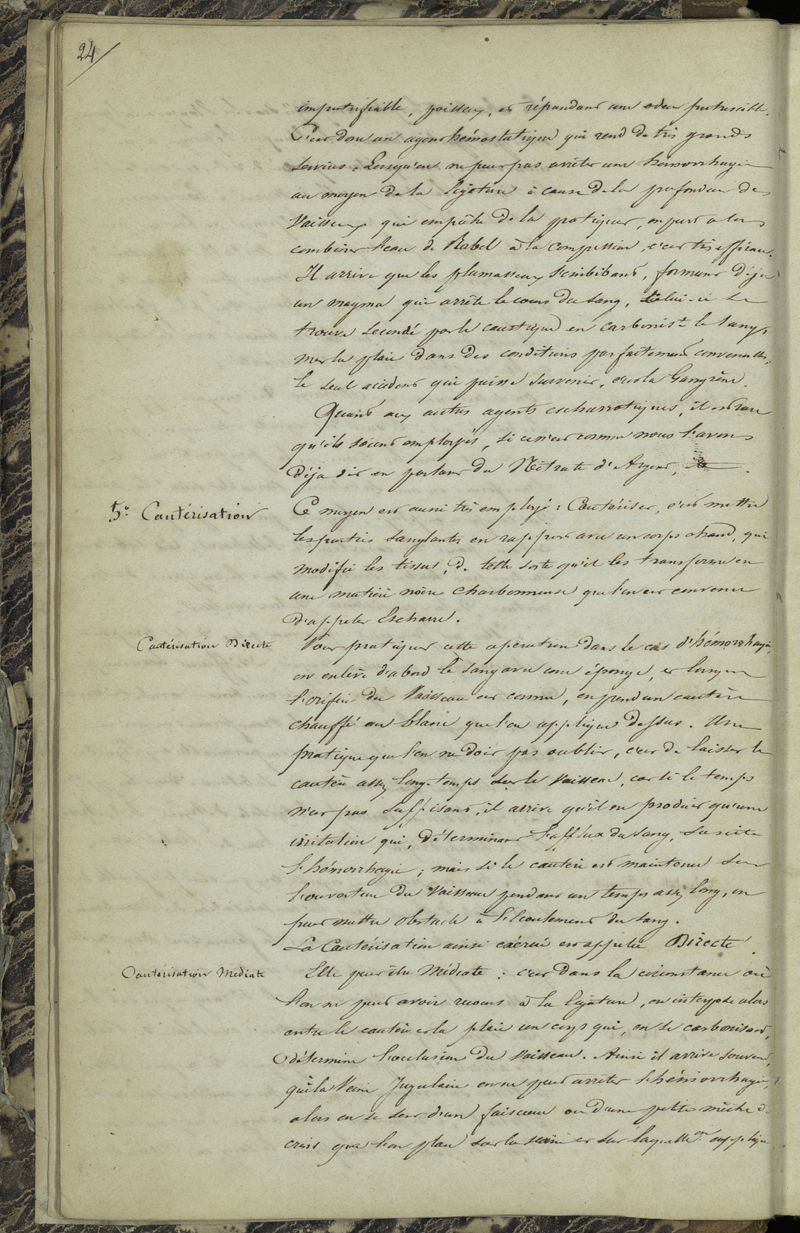 24/
imputrifiable, poisseux, et répandant une odeur
C'est donc un agent hémostatique qui rend de très grands
services. Lorsqu'on ne peut pas arrêter une hémorrhagie
au moyen de la ligature à cause de la profondeur des
vaisseaux qui empêche de la pratiquer, on peut alors
combiner l'eau de Rabel à la compression, c'est très efficace.
Il arrive que les plumasseaux s'imbibant, formant déja
un magma qui arrête le cours du sang, celui-ci se
trouve secondé par le caustique en carbonist le sang,
met la plaie dans des conditions parfaitement convenables,
le seul accident qui puisse survenir, c'est la Gangrène.
Quant aux autres agents escharrotiques, il est rare
qu'ils soient employés, si ce n'est comme nous l'avons
déja dit en parlant du Nitrate d'Argent,
5° Cautérisation
Ce moyen est aussi très employé : Cautériser, c'est mettre
les parties sanglantes en rapport avec un corps chaud, qui
modifie les tissus, de telle sorte qu'il les transforme en
une matière noire charbonneuse que l'on est convenu
d'appeler Escharre.
Cautérisation Directe
Pour pratiquer cette opération dans le cas d'hémorrhagie,
on enlève d'abord le sang avec une éponge, et lorsque
l'orifice du vaisseau est connu, on prend un cautère
chauffé au blanc que l'on applique dessus. Une
pratique que l'on ne doit pas oublier, c'est de laisser le
cautère assez longtemps sur le vaisseau, car si le temps
n'est pas suffisant, il arrive qu'il en produit qu'une
irritation qui, déterminant l'afflux du sang, suscite
l'hémorrhagie ; mais si le cautère est maintenu sur
l'ouverture du vaisseau pendant un temps assez long, on
peut mettre obstacle à l'écoulement du sang.
La Cautérisation ainsi exécutée est appelée Directe
Cautérisation Médiate
Elle peut être Médiate ; c'est dans la circonstance où
l'on ne peut avoir recours à la ligature, on interpose alors
entre le cautère et la plaie un corps qui, en se carbonisant,
détermine l'occlusion du vaisseau. Ainsi il arrive souvent
qu'à la Veine Jugulaire on ne peut arrêter l'hémorrhagie,
alors on se sert d'un faisceau ou d'une petite mèche de
crins que l'on place sur la veine et sur laquelle on applique